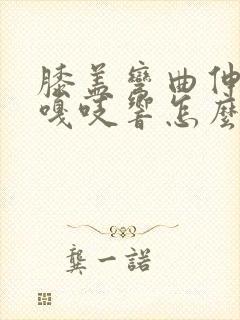 膝盖弯曲伸
嘎吱響怎麼
龔一諾